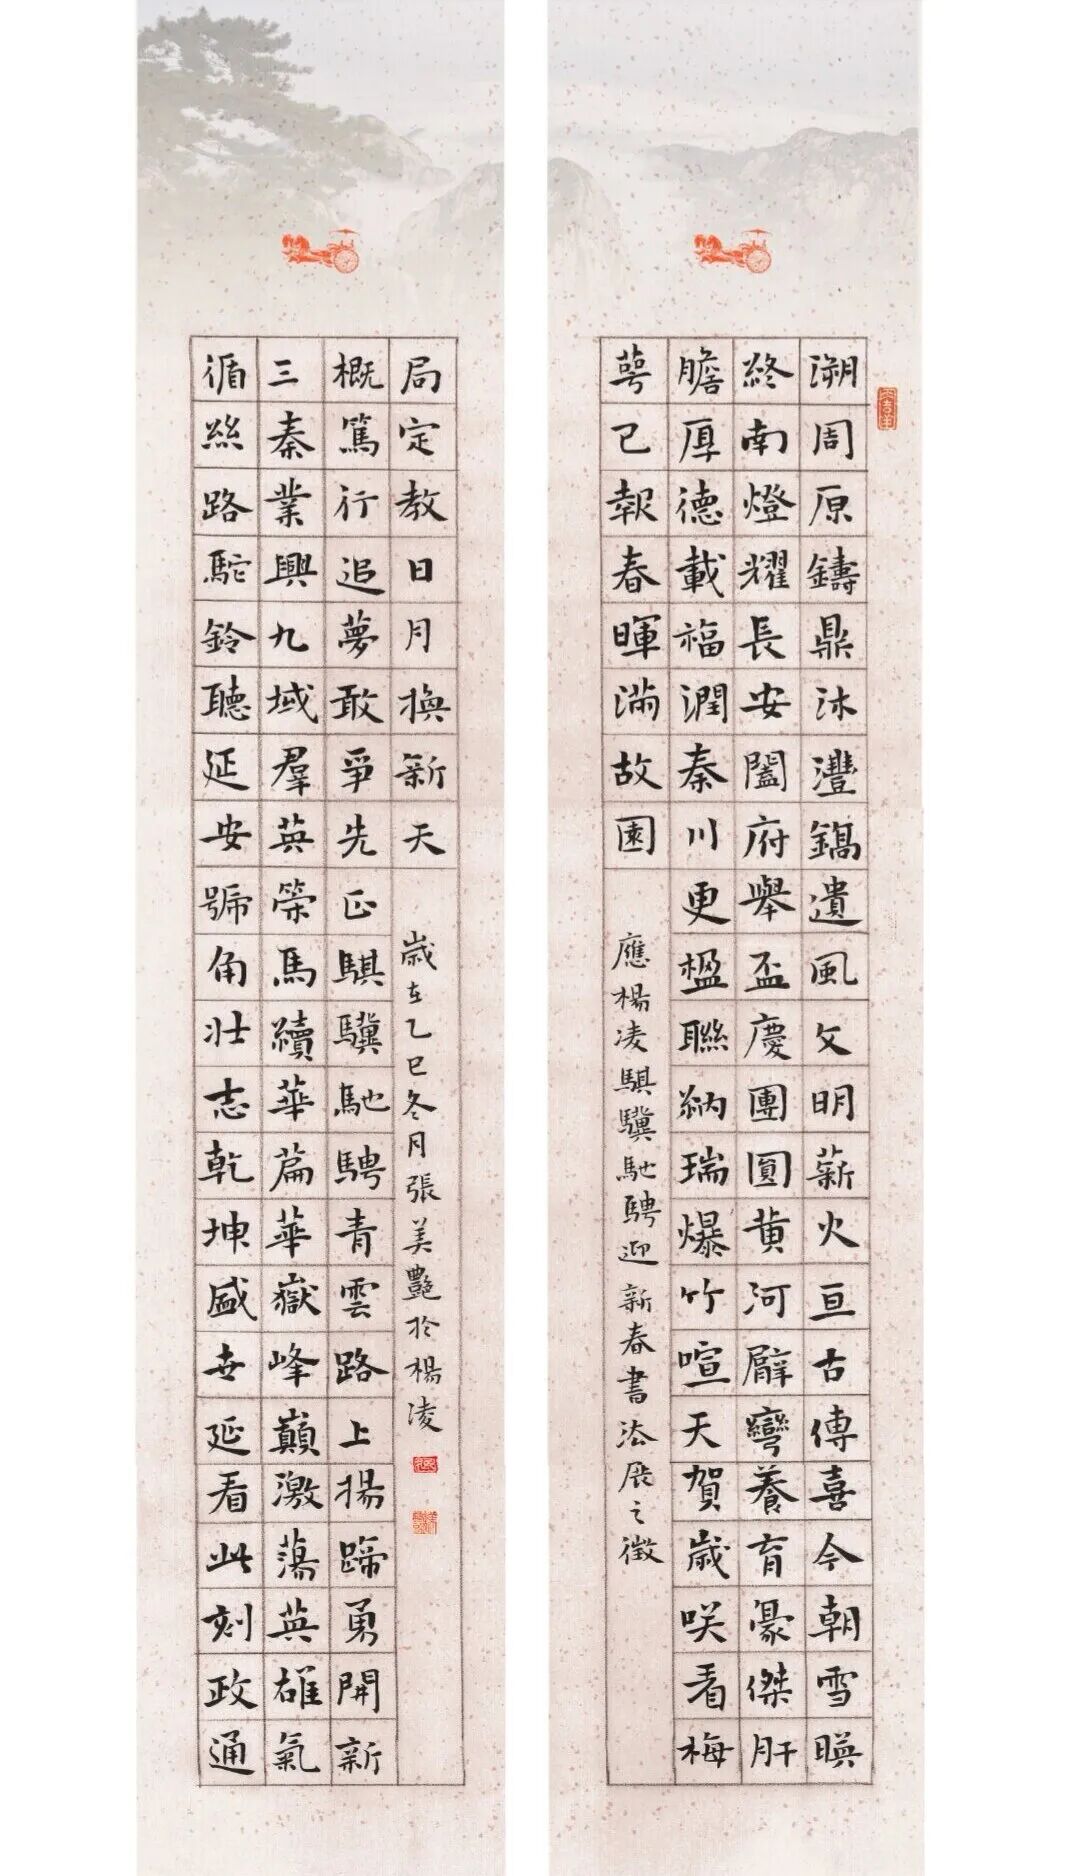 溯周原鑄鼎沐灃鎬遺風文明薪火亘古傳喜今朝雪暎
終南燈耀長安闔府舉盃慶團圓黄河臂彎養育豪傑肝
膽厚德載福潤秦川更楹聯納瑞爆竹喧天賀歲咲看梅
萼已報春暉滿故園
應楊凌騏驥馳騁迎新春書法展之徵
循絲路駝鈴聽延安號角壯志乾坤盛世延看此刻政通
三秦業興九域羣英策馬續華篇華嶽峰巔激蕩英雄氣
概篤行追夢敢爭先正騏驥馳騁青雲路上揚蹄勇開新
局定教日月換新天
歲在乙巳冬月張美艷於楊凌